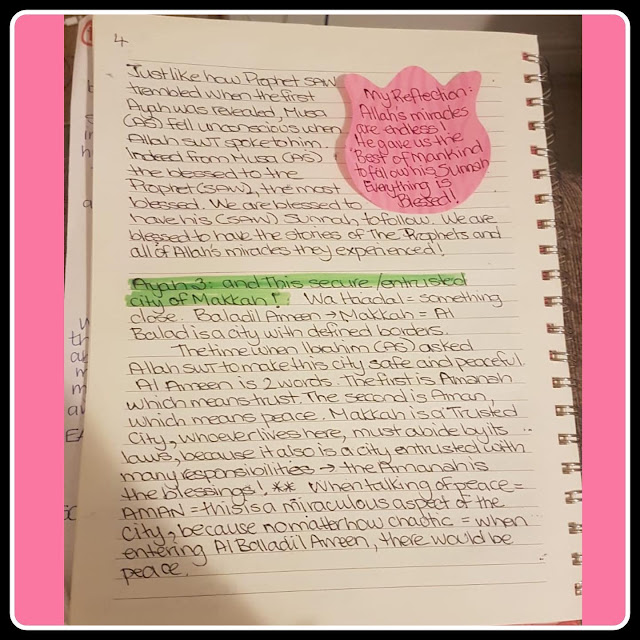 4
Just like how Prophet SAW
trembled when the first
Ayah was revealed, Musa
(AS) fell unconscious when
Allah SWT spoke to him.
Indeed from Musa (AS)
the blessed to the
Prophet (SAW), the most
blessed. We are blessed to
have his (SAW) Sunnah, to follow. We are
blessed to have the stories of The Prophets and
all of Allah's miracles they experienced!
My Reflection:
Allah's miracles
are endless!
He gave us the
Best of Mankind
to follow his Sunnah
Everything is
Blessed!
Ayah 3: and this secure/entrusted
city of Makkah! Wa Haadal = something
close. Baladil Ameen → Makkah = Al
Balad is a city with defined borders.
The time when Ibrahim (AS) asked
Allah SWT to make this city safe and peaceful.
Al Ameen is 2 words. The first is Amanah
which means trust. The second is Aman,
which means peace. Makkah is a Trusted
City, whoever lives here, must abide by its
laws, because it also is a city entrusted with
many responsibilities → the Amanah is
the blessings! ** When talking of peace =
AMAN = this is a miraculous aspect of the
city, because no matter how chaotic = when
entering Al Balladil Ameen, there would be
peace.